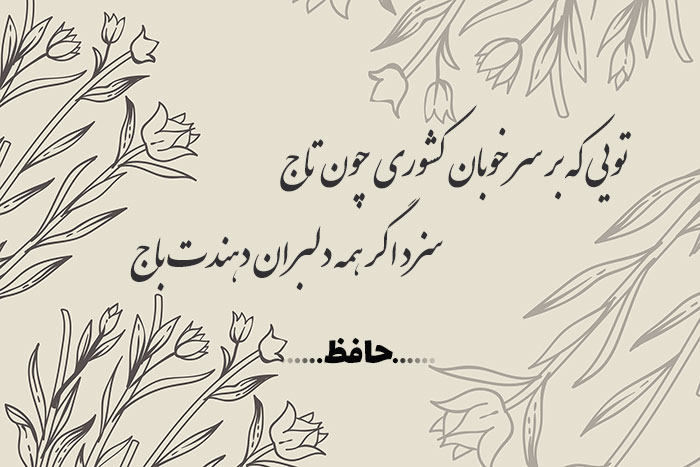 تویی که بر سر خوبان کشوری چون تاج
سزد اگر همه دلبران دهندت باج
......حافظ......